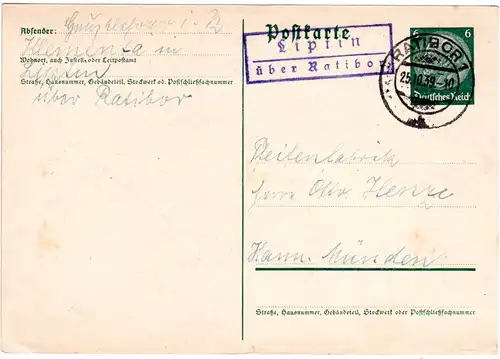 Absender: Hauptlehrer i. R.
Klemenza in
Wohnort, auch Zustell- oder Leitpostamt
Liptin
Straße, Hausnummer, Gebäudeteil, Stockwerk od. Postschließfachnummer
über Ratibor
Postkarte
Liptin
über Ratibor
RATIBOR 1
25.10.39.-10
6 6
Deutsches Reich
Feilenfabrik
Herrn Otto Henze
Hann. Münden
Straße, Hausnummer, Gebäudeteil, Stockwerk oder Postschließfachnummer